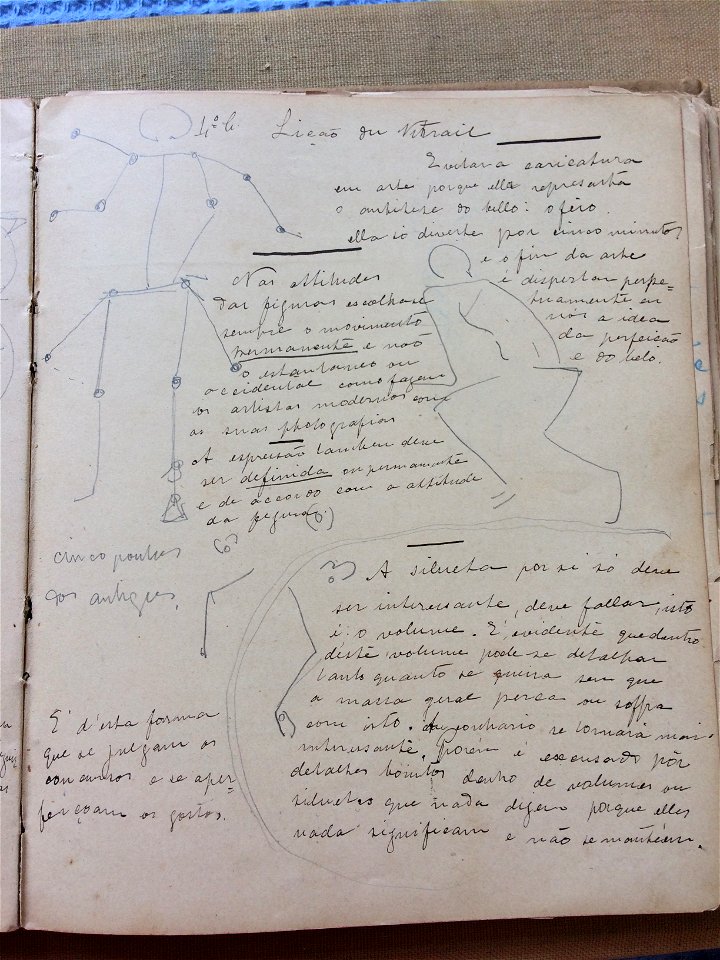 Lição du Vitrail
Evitar a caricatura
em arte porque ella representa
o antitese do bello: o feio.
ella só diverte por cinco minutos
e o fim da arte
é dispertar perpe-
tuamente em
nós a idea
da perfeição
e do belo.
Nas attitudes
das figuras escolhase
sempre o movimento
permanente e não
o estantaneo ou
accidental como fazem
os artistas modernos com
as suas photografias
A expressão tambem deve
ser definida ou permanente
e de accordo com a attitude
da figura.
cinco pontos
dos antigos.
A silueta por si só deve
ser interessante, deve fallar, isto
é: o volume. E' evidente que dentro
deste volume pode-se detalhar
tanto quanto se queira sem que
a massa geral perca ou soffra
com isto. Ao contrario se tornará mais
interessante. Porem é excusado pôr
detalhes bonitos dentro de volumes ou
siluetas que nada dizem porque elles
nada significam e não se mantéem.
E' d'esta forma
que se julgam os
concursos e se aper-
feiçoam os gostos.